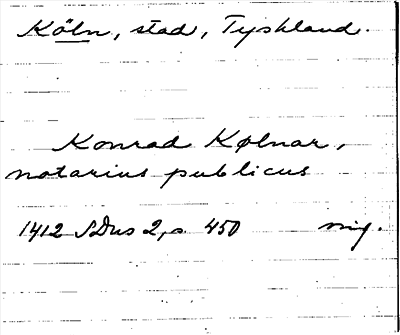 Köln, stad, Tyskland.
Konrad Kølnar,
notarius publicus
1412 SDns 2, s. 450